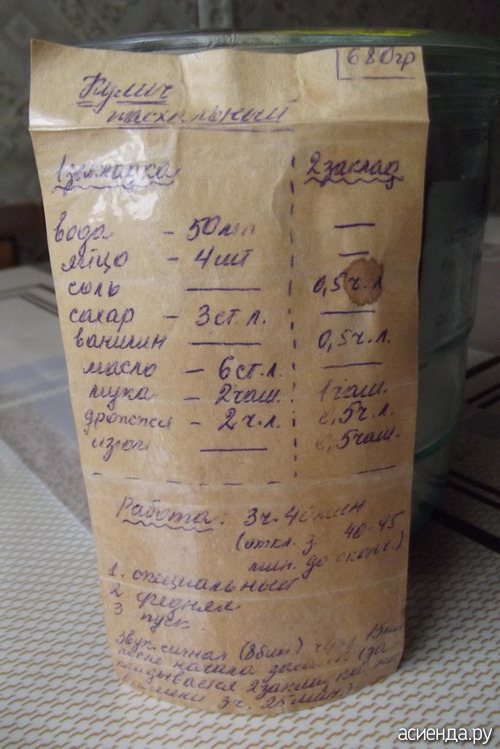 680гр
Кулич
пасхальный
1 закладка 2 заклад
вода - 50мл —
яйцо - 4шт —
соль — 0,5ч.л
сахар - 3ст.л. —
ванилин — 0,5ч.л.
масло - 6ст.л. —
мука - 2чаш. 1чаш.
дрожжи - 2ч.л. 0,5ч.л.
изюм — 0,5чаш.
Работа: 3ч.40мин
(откл. з. 40-45
мин. до оконч.)
1. специальный
2 средняя
3 пуск.
Звук. сигнал (8бип) 15мин
после начала (за
2 заклад
3ч. 25мин)
асиенда.ру